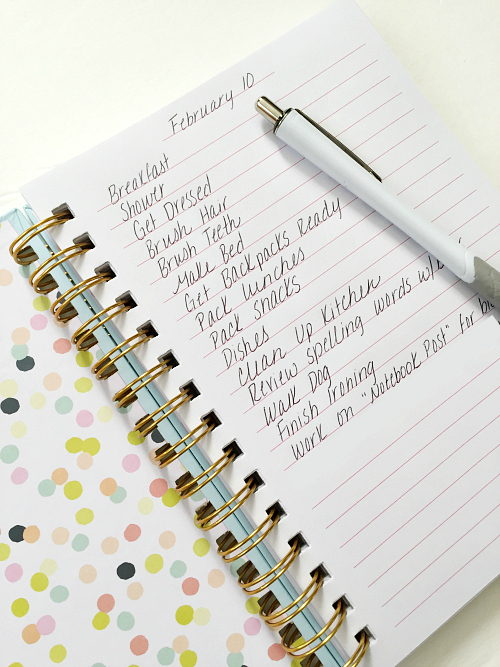 February 10
Breakfast
Shower
Get Dressed
Brush Hair
Brush Teeth
Make Bed
Get Backpacks Ready
Pack lunches
Pack snacks
Dishes
Clean Up Kitchen
Review spelling words
Walk Dog
Finish Ironing
Work on "Notebook Post" for